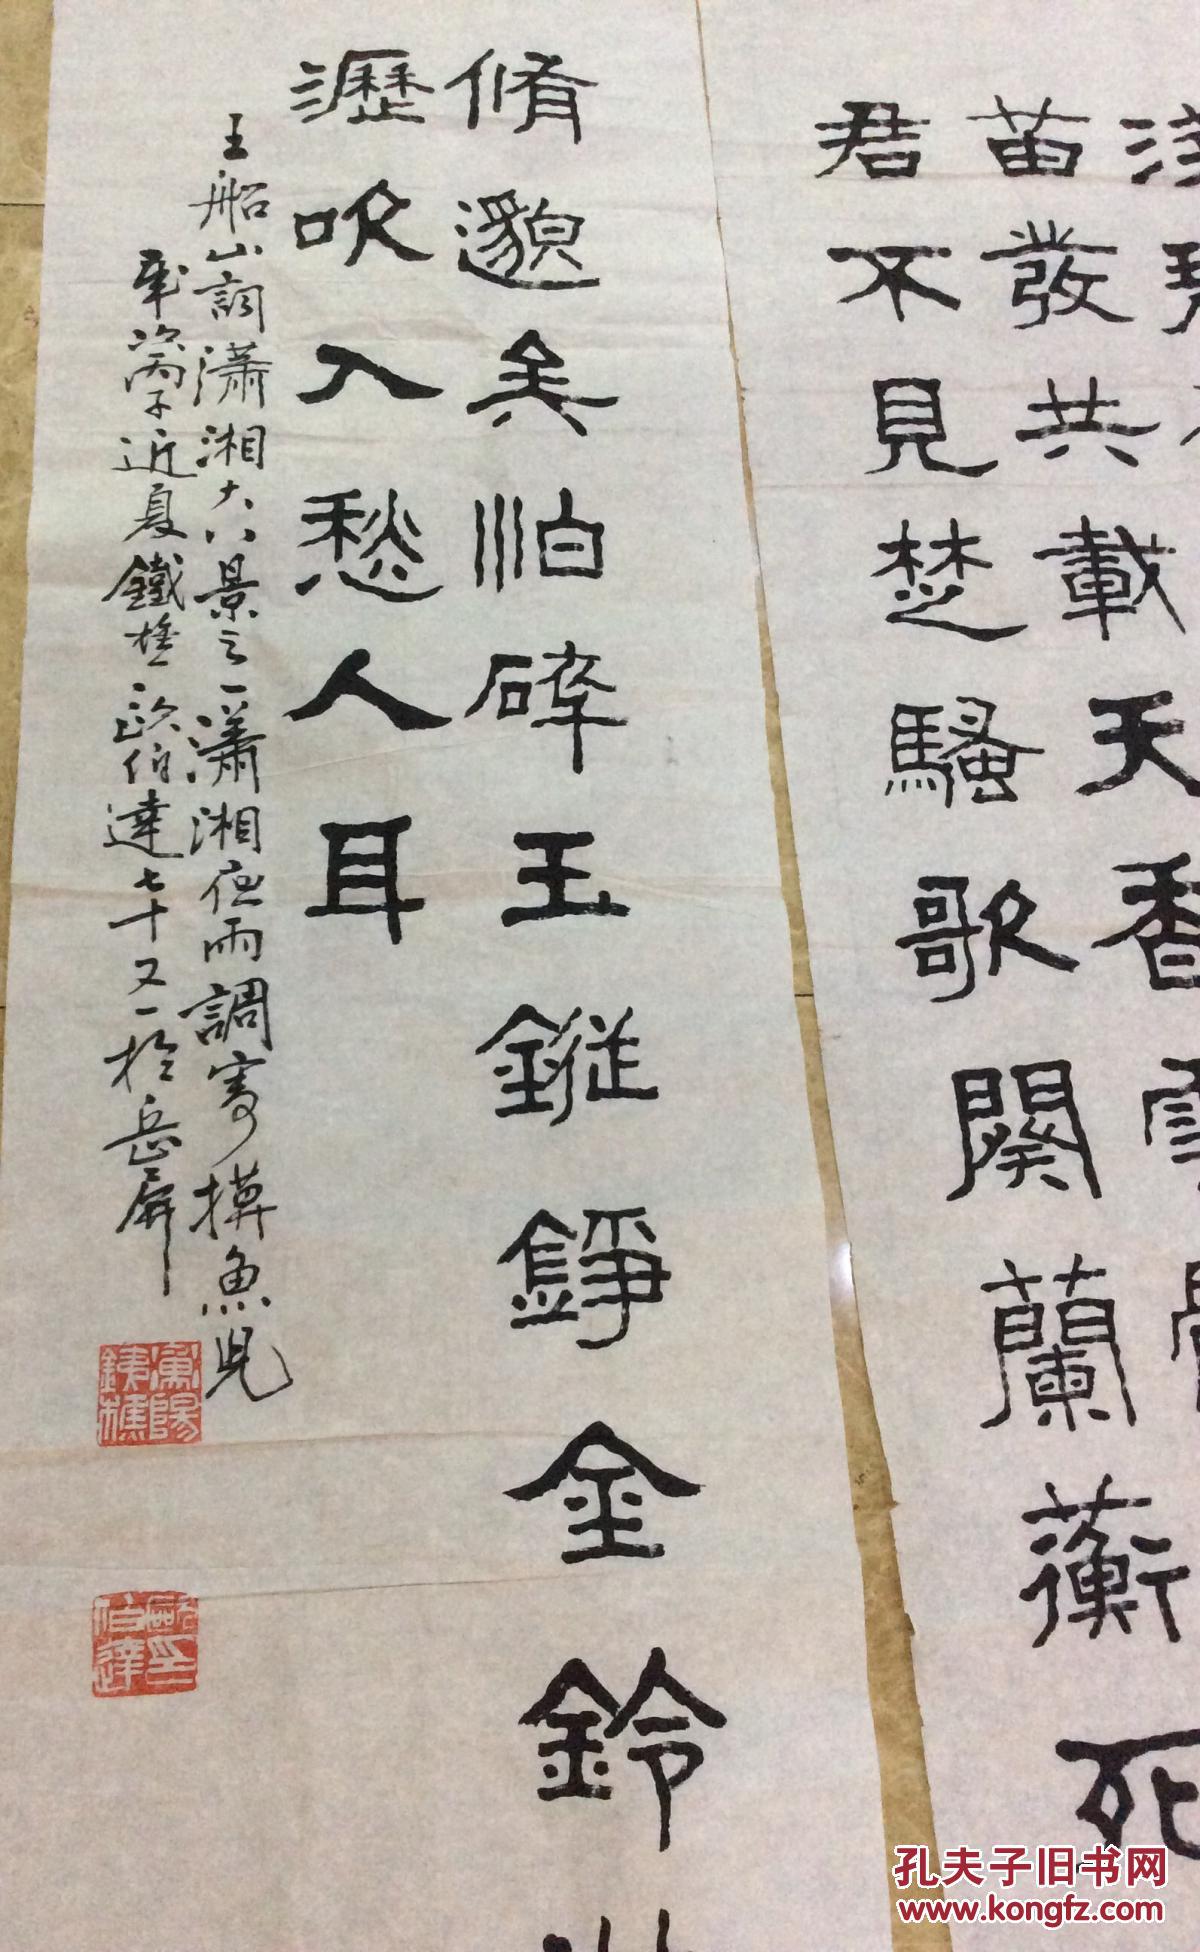 苗發共載天香
君不見楚騷歌闋蘭蘅死
脩邈矣怕碎玉鏦錚金鈴
瀝吹入愁人耳
王船山詞瀟湘大八景之一瀟湘夜雨調寄摸魚兒
歲次丙子近夏鐵樵歐伯達七十又一於岳屏
衡陽鐵樵
歐伯達印
孔夫子旧书网
www.kongfz.com